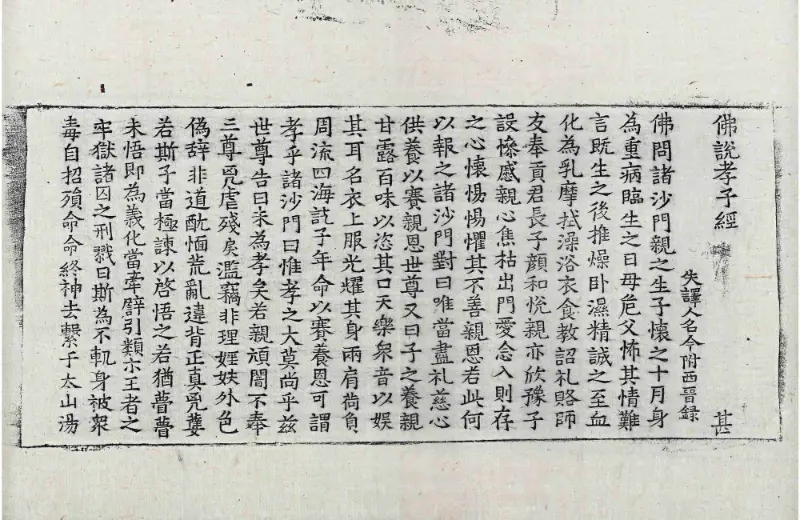 佛說孝子經
甚
失譯人名今附西晉錄
佛問諸沙門親之生子懷之十月身
為重病臨生之日母危父怖其情難
言既生之後推燥卧濕精誠之至血
化為乳摩拭澡浴衣食教詔礼賂師
友奉貢君長子顏和悅親亦欣豫子
設慘慼親心焦枯出門愛念入則存
之心懷惕惕懼其不善親恩若此何
以報之諸沙門對曰唯當盡礼慈心
供養以賽親恩世尊又曰子之養親
甘露百味以恣其口天樂衆音以娛
其耳名衣上服光耀其身兩肩荷負
周流四海訖子年命以賽養恩可謂
孝乎諸沙門曰惟孝之大莫尚乎兹
世尊告曰未為孝矣若親頑闇不奉
三尊兇虐殘戾濫竊非理婬妷外色
偽辞非道酖愐荒亂違背正真兇孽
若斯子當極諫以啓悟之若猶瞢瞢
未悟即為義化當牽譬引類示王者之
牢獄諸囚之刑戮曰斯為不軌身被衆
毒自招殞命命終神去繫于太山湯